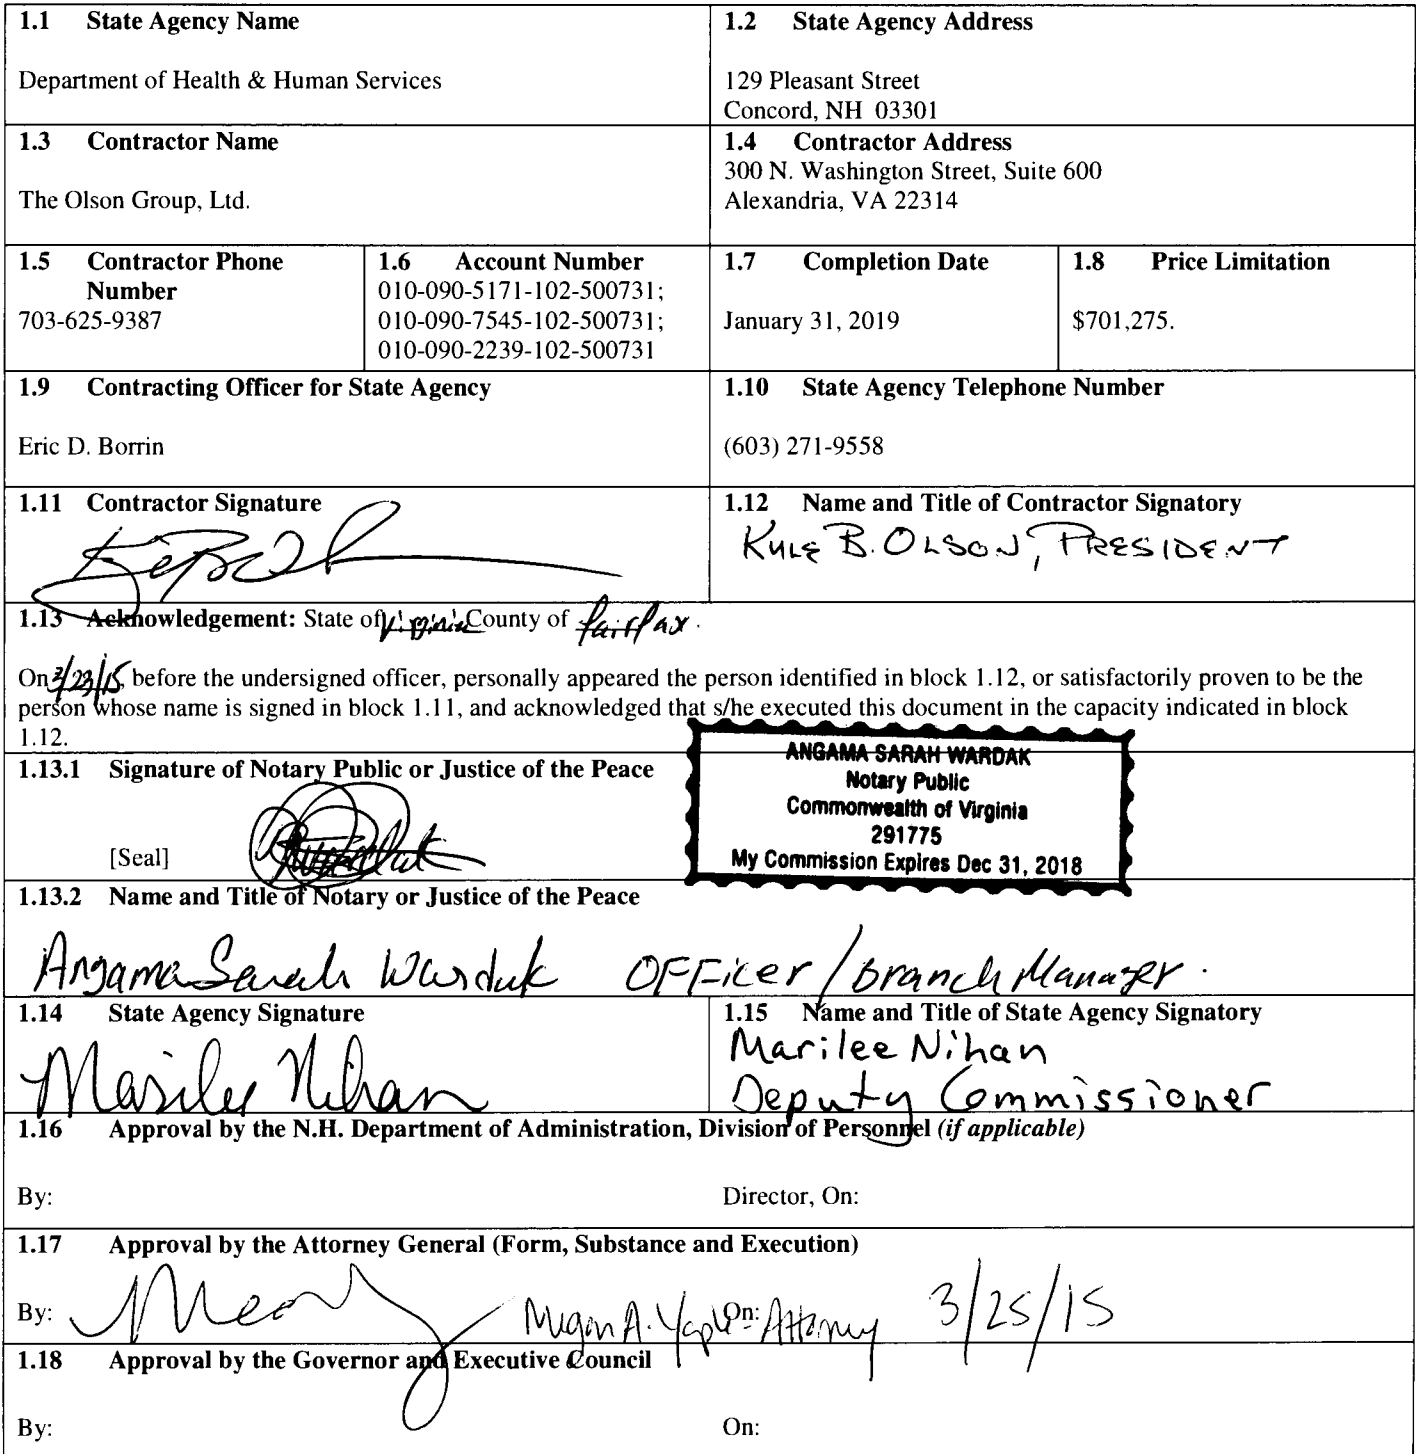 1.1 State Agency Name
Department of Health & Human Services
1.2 State Agency Address
129 Pleasant Street
Concord, NH 03301
1.3 Contractor Name
The Olson Group, Ltd.
1.4 Contractor Address
300 N. Washington Street, Suite 600
Alexandria, VA 22314
1.5 Contractor Phone
Number
703-625-9387
1.6 Account Number
010-090-5171-102-500731;
010-090-7545-102-500731;
010-090-2239-102-500731
1.7 Completion Date
January 31, 2019
1.8 Price Limitation
$701,275.
1.9 Contracting Officer for State Agency
Eric D. Borrin
1.10 State Agency Telephone Number
(603) 271-9558
1.11 Contractor Signature
1.12 Name and Title of Contractor Signatory
KYLE B. OLSON, PRESIDENT
1.13 Acknowledgement: State of Virginia County of fairfax.
On 3/23/15, before the undersigned officer, personally appeared the person identified in block 1.12, or satisfactorily proven to be the
person whose name is signed in block 1.11, and acknowledged that s/he executed this document in the capacity indicated in block
1.12.
ANGAMA SARAH WARDAK
Notary Public
Commonwealth of Virginia
291775
My Commission Expires Dec 31, 2018
1.13.1 Signature of Notary Public or Justice of the Peace
[Seal]
1.13.2 Name and Title of Notary or Justice of the Peace
Angama Sarah Wardak OFFicer/branch Manager.
1.14 State Agency Signature
Marilee Nihan
1.15 Name and Title of State Agency Signatory
Marilee Nihan
Deputy Commissioner
1.16 Approval by the N.H. Department of Administration, Division of Personnel (if applicable)
By: Director, On:
1.17 Approval by the Attorney General (Form, Substance and Execution)
By: Megan A. Yaple - Attorney On: 3/25/15
1.18 Approval by the Governor and Executive Council
By: On: